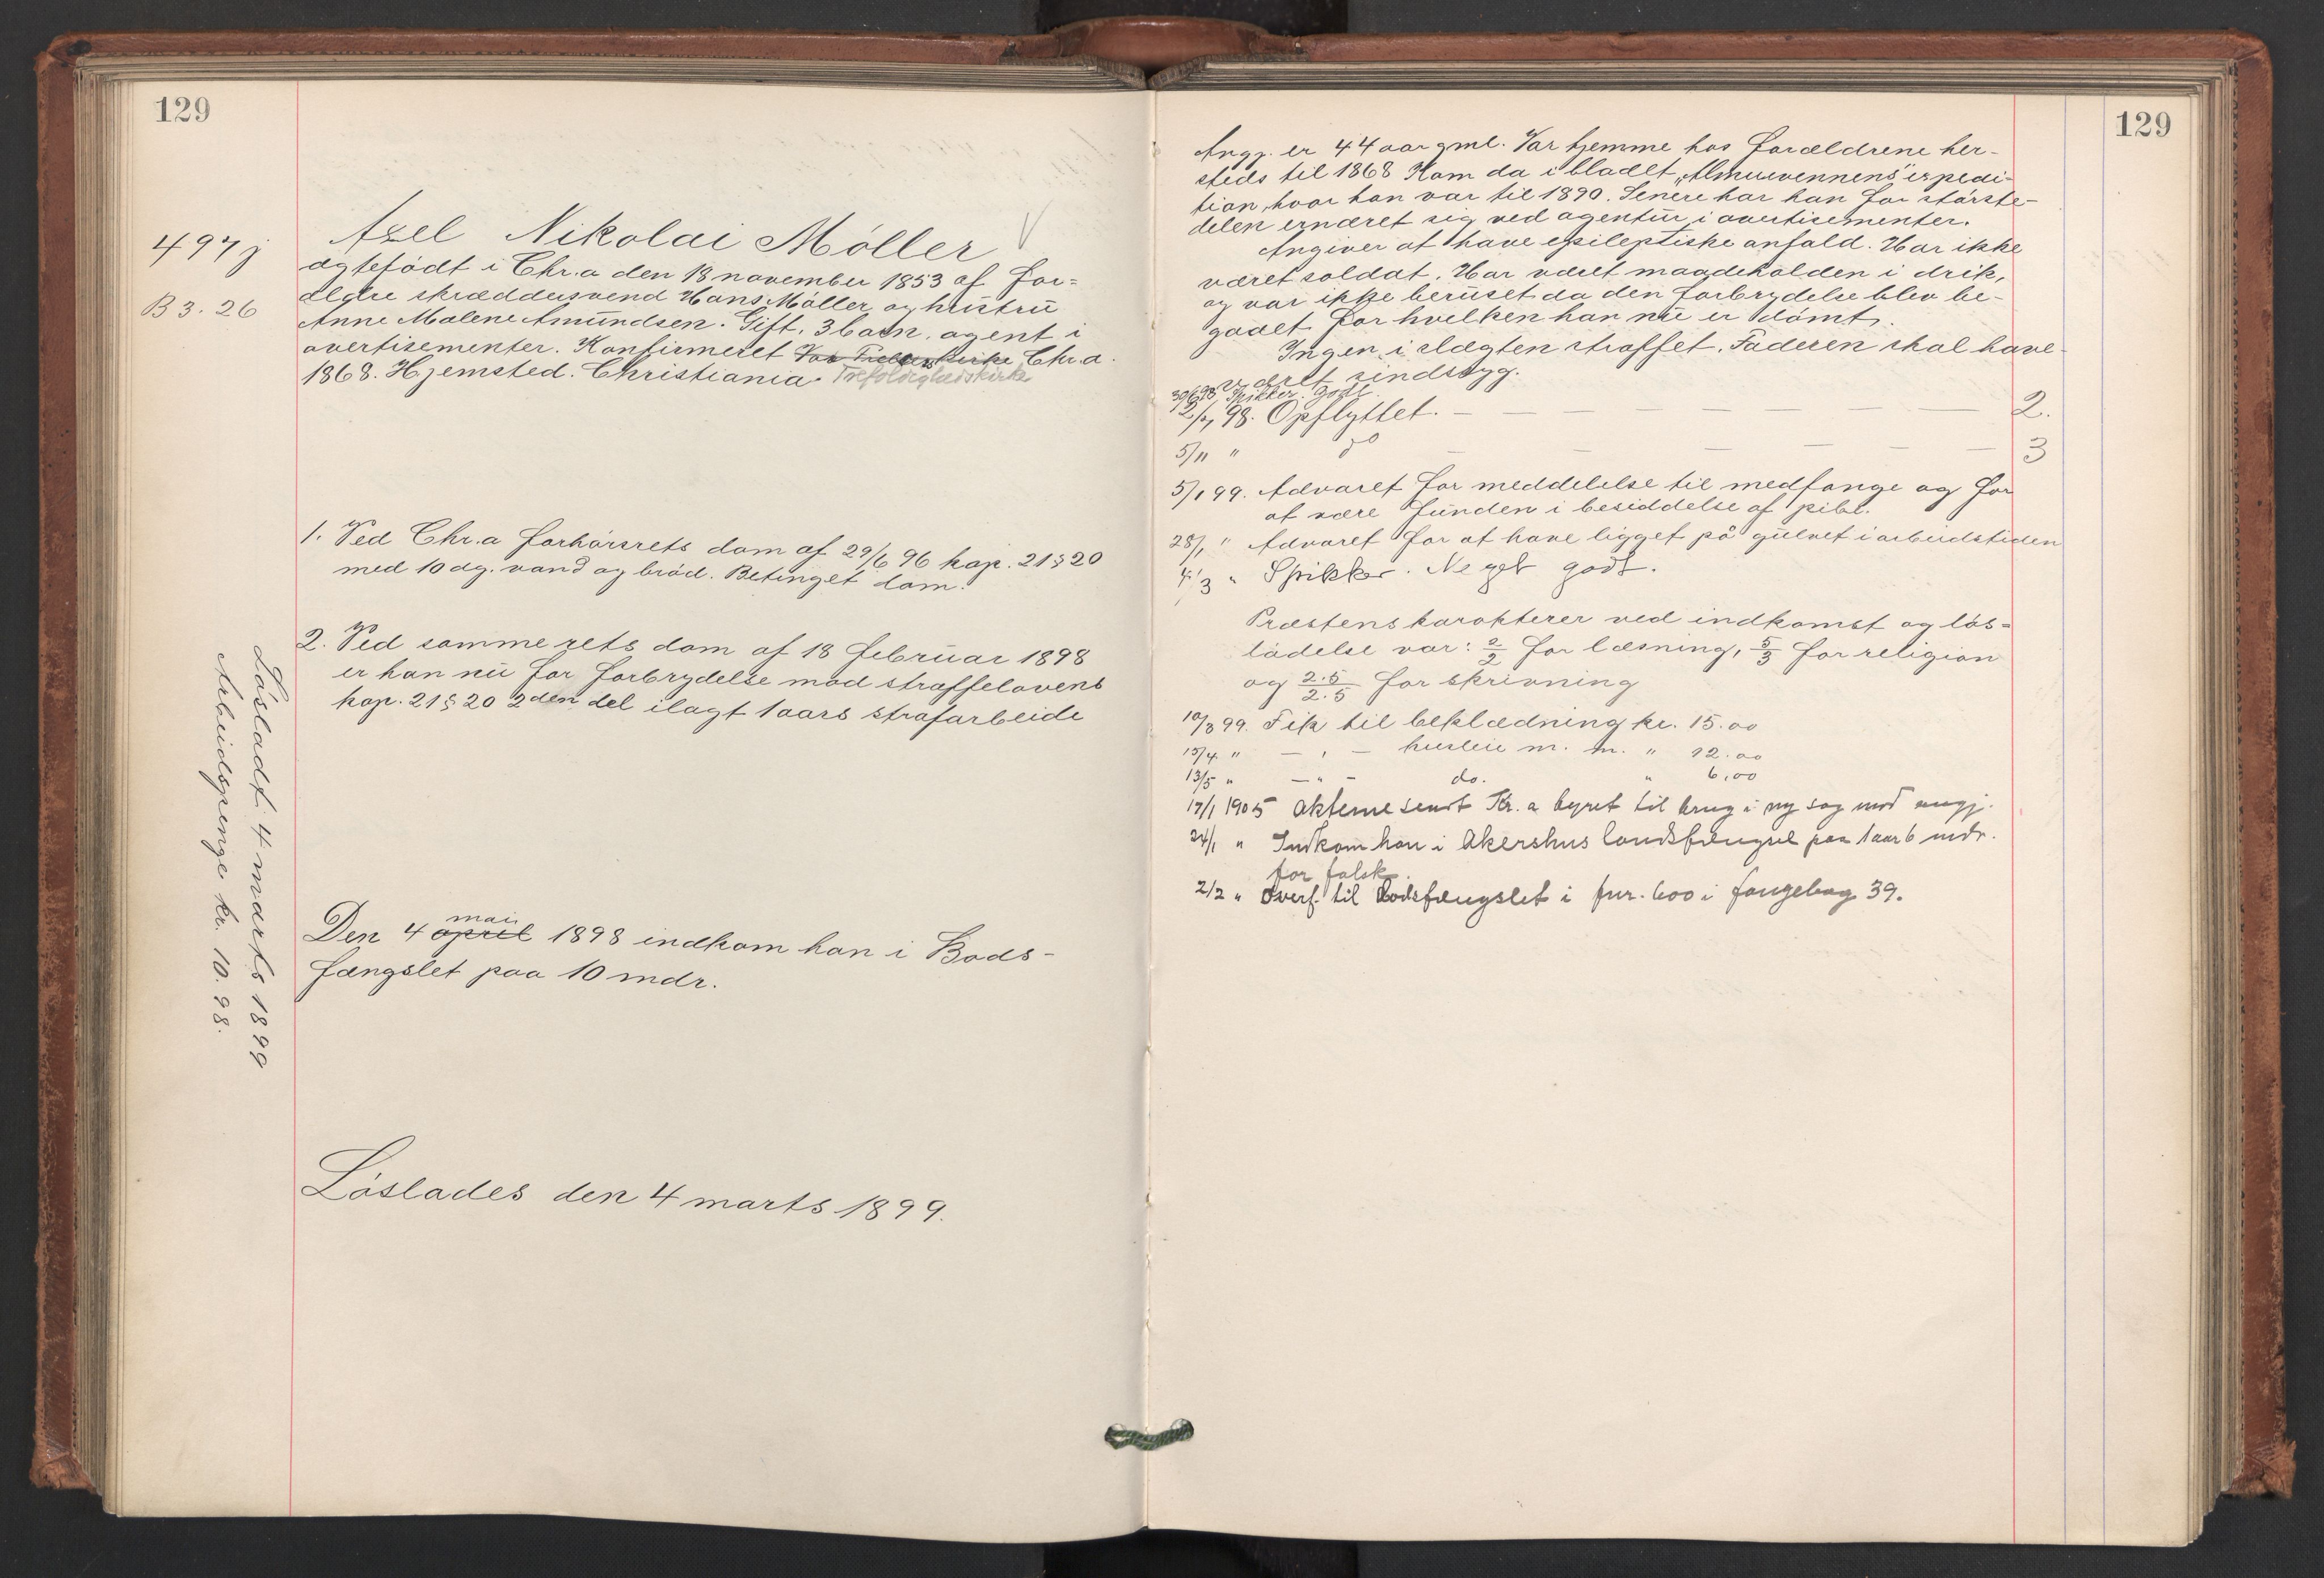 129
497 j
B 3. 26
Axel Nikolai Möller V
ægtefödt i Chr.a den 18 november 1853 af for=
ældre skræddersvend Hans Möller og hustru
Anne Malene Amundsen. Gift. 3 barn. agent i
avertisementer. Konfirmeret Vor Frelsers Kirke Chr.a.
1868. Hjemsted. Christiania. Trefoldighedskirke
1. Ved Chr.a forhörsrets dom af 29/6 96 kap. 21 § 20
med 10 dg. vand og bröd. Betinget dom.
2. Ved samme rets dom af 18 februar 1898
er han nu for forbrydelse mod straffelovens
kap. 21 § 20 2den del ilagt 1 aars strafarbeide
Lösladt 4 marts 1899
Arbeidspenge kr. 10.98.
mai
Den 4 april 1898 indkom han i Bods-
fængslet paa 10 mdr.
Löslades den 4 marts 1899.
129
Angj. er 44 aar gml. Var hjemme hos forældrene her-
steds til 1868 Kom da i bladet „Almuevennens" expedi-
tion, hvor han var til 1890. Senere har han for störste-
delen ernæret sig ved agentur i avertisementer.
Angiver at have epileptiske anfald. Har ikke
været soldat. Har været maadeholden i drik,
og var ikke beruset da den forbrydelse blev be-
gaaet for hvilken han nu er dömt.
Ingen i slægten straffet. Faderen skal have
været sindssyg.
30/6 98. Spikker. Godt
2/7 98. Opflyttet. — — — — — 2.
5/11 " do — — — — — 3
5/1 99. Advaret for meddelelse til medfange og for
at være funden i besiddelse af pibl.
28/1 " Advaret for at have ligget på gulvet i arbeidstiden
4/3 " Spikker. Meget godt.
Præstens karakterer ved indkomst og lös-
ladelse var: 2/2 for læsning, 3/3 for religion
og 2.5/2.5 for skrivning
10/3 99. Fik til beklædning kr. 15.00
15/4 " — " — husleie m. m. " 12.00
13/5 " — " — do. " 6,00
17/1 1905 Akterne sendt Kr.a byret til brug i ny sag mod angj.
24/1 " Indkom han i Akershus landsfængsel paa 1 aar 6 mdr.
for falsk.
2/2 " Overf. til Bodsfængslet i fnr. 600 i fangebog 39.